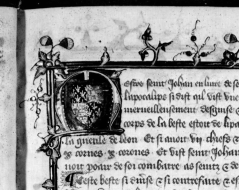 estoo seint Johan en liure de se
lapocalips si dist qil vist vne
merueillensement desguise
corps de la beste estoit de lipa
la gueule de leon Et si auoit vij chiefs &
x cornes x corones Et vist seint Johan
poair de soi combatre as seintz & de
Ceste beste si & contrefaite &